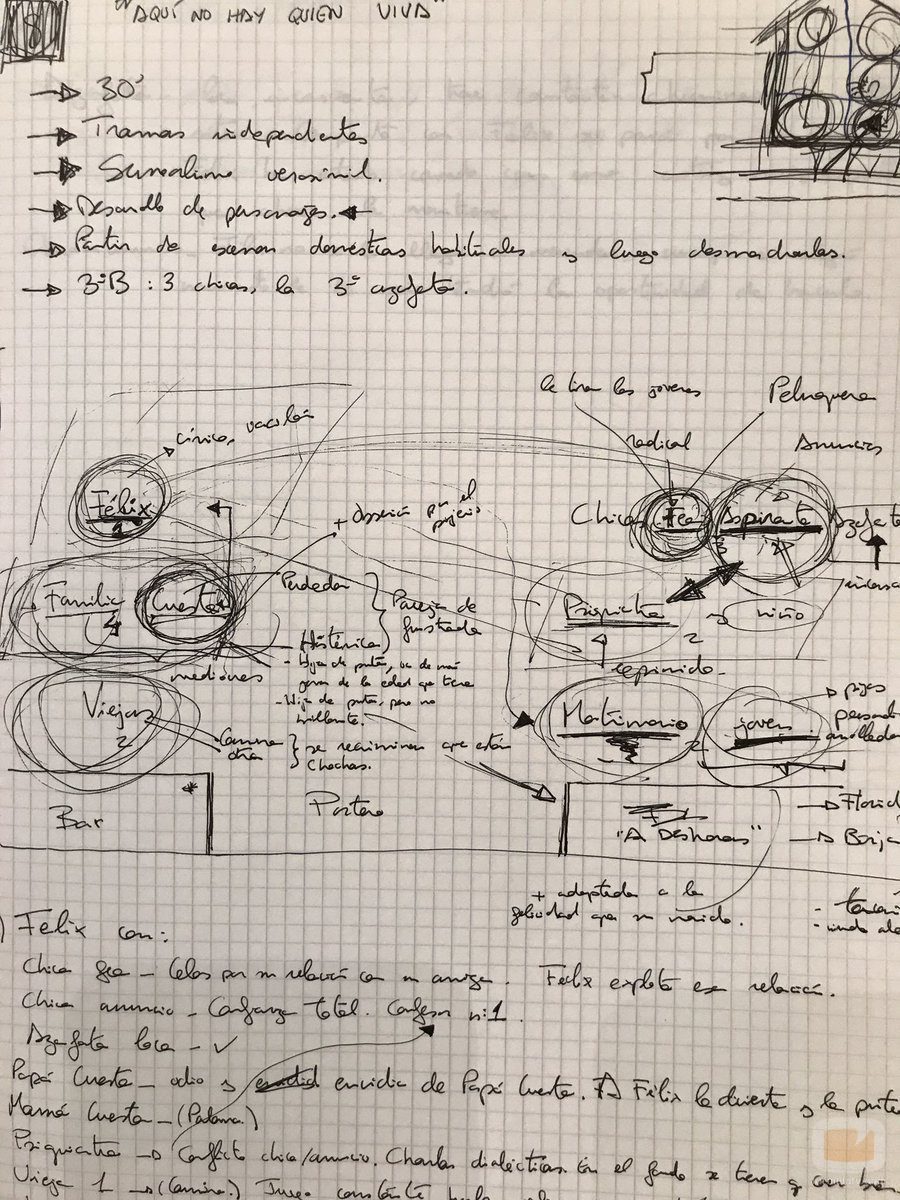 "AQUÍ NO HAY QUIEN VIVA"
30'
Tramas independientes
Surrealismo verosímil.
Desarrollo de personajes.
Partir de escenas domésticas habituales y luego desmadrarlas.
3ºB : 3 chicas, la 3ª azafata.
le tiran los jóvenes
Peluquera
cínico, vacilón
radical
Anuncios
Félix
1
+ obsesión por el
Chicas
Fea
Aspirante
Azafata
3
Familia
Cuesta
4
Perdedor
Pareja de
frustrada
Psiquiatra
2
niño
Histérica
mediones
- Hija de puta, va de más
joven de la edad que tiene
- Hija de puta, pero no
brillante.
reprimido.
Viejas
2
Carmina
otra
se recriminan que están
chochas.
Matrimonio
2
joven
pijos
Bar
Portero
"A DESHORAS"
Borja
+ adaptada a la
felicidad que su marido.
Félix con:
Chica fea - Celos por su relación con su amiga. Félix explota esa relación.
Chica anuncio - Confianza total. Confesor nº1.
Azafata loca -
Papá Cuesta - odio y envidia de Papá Cuesta. A Félix le divierte y le
Mamá Cuesta - (Paloma.)
Psiquiatra Conflicto chica/anuncio. Charlas dialécticas. En el fondo se tienen
Vieja 1 (Carmina.) Juego constante